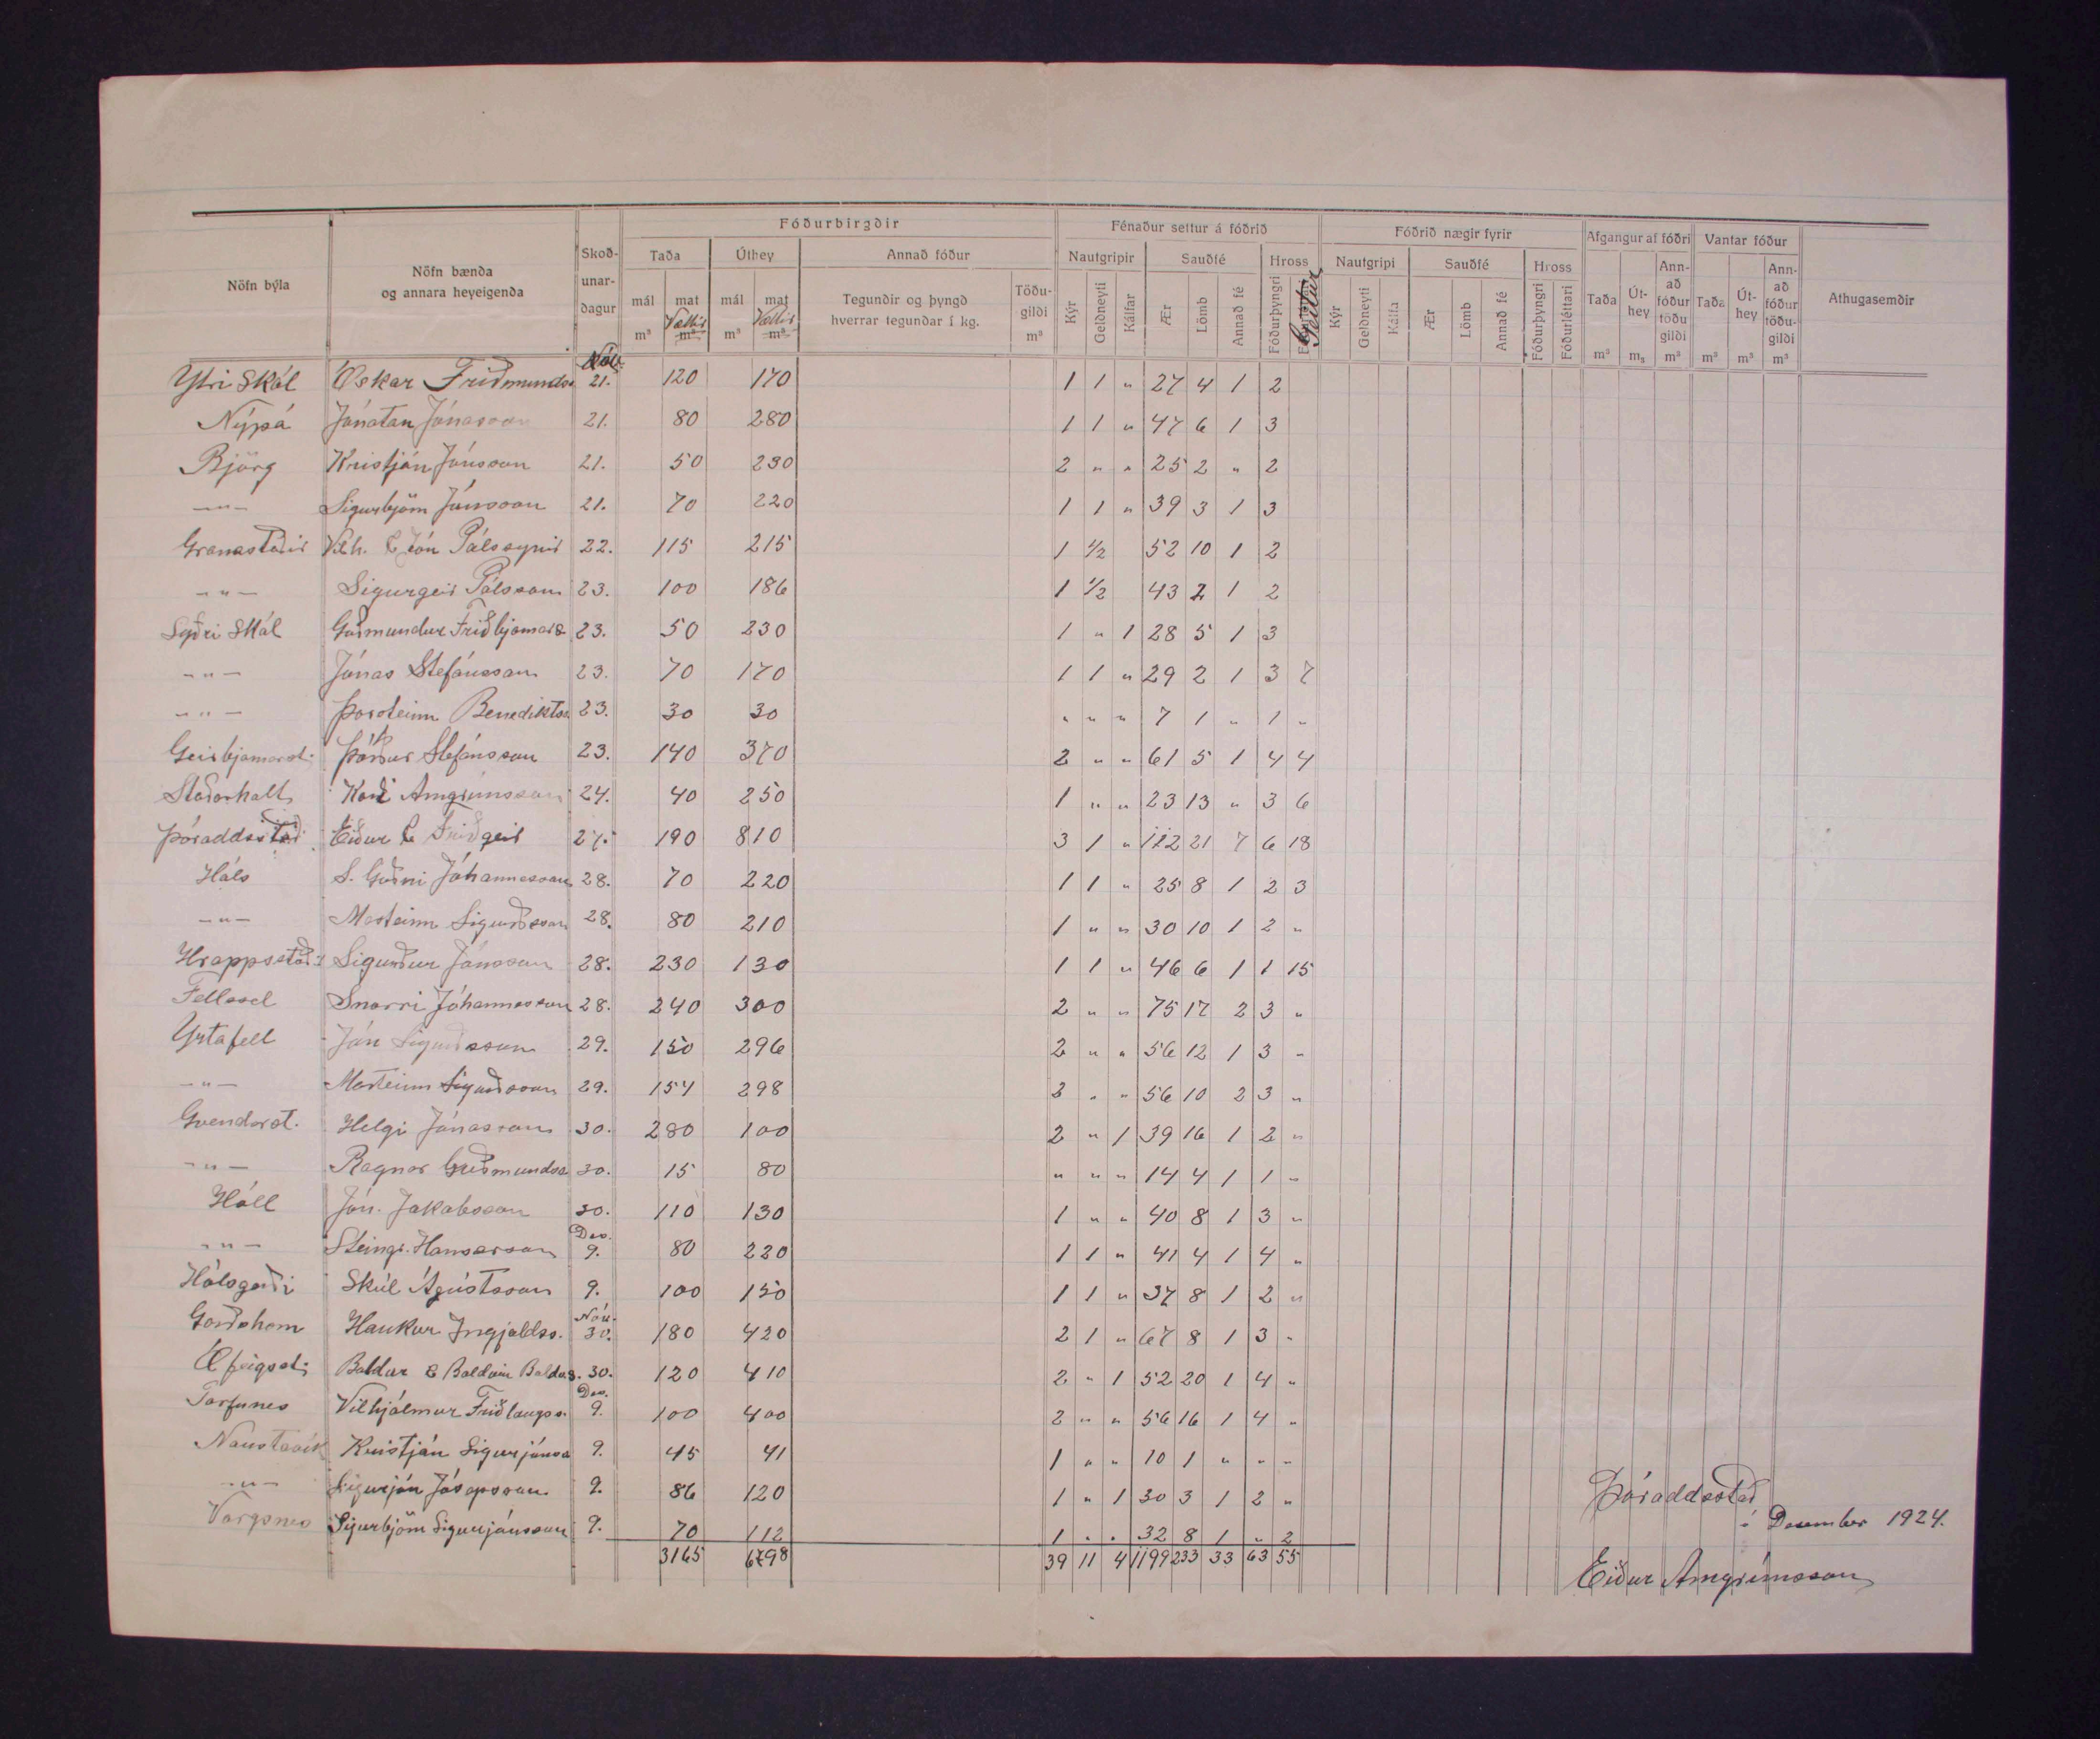 Fóðurbirgðir Fénaður settur á fóðrið Fóðrið nægir fyrir Afgangur af fóðri Vantar fóður
Nöfn býla Nöfn bænda og annara heyeigenda Skoðunardagur Taða Úthey Annað fóður Nautgripir Sauðfé Hross Nautgripi Sauðfé Hross Athugasemdir
mál m³ mat Vættir m³ mál m³ mat Vættir m³ Tegundir og þyngd hverrar tegundar í kg. Töðugildi m³ Kýr Geldneyti Kálfar Ær Lömb Annað fé Fóðurþyngri Geitur Kýr Geldneyti Kálfa Ær Lömb Annað fé Fóðurþyngri Fóðurléttari Taða m³ Úthey m₃ Annað fóður töðugildi m³ Taða m³ Úthey m³ Annað fóður töðugildi m³
Nóv.
Ytri Skál Óskar Friðmunds. 21. 120 170 1 1 " 27 4 1 2
Nýpá Jónatan Jónasson 21. 80 280 1 1 " 47 6 1 3
Björg Kristján Jónsson 21. 50 230 2 " " 25 2 " 2
—"— Sigurbjörn Jónsson 21. 70 220 1 1 " 39 3 1 3
Granastaðir Vilh. & Jón Pálssynir 22. 115 215 1 ½ 52 10 1 2
—"— Sigurgeir Pálsson 23. 100 186 1 ½ 43 2 1 2
Syðri Skál Guðmundur Friðbjarnars. 23. 50 230 1 " 1 28 5 1 3
—"— Jónas Stefánsson 23. 70 170 1 1 " 29 2 1 3 7
—"— Þorsteinn Benediktss. 23. 30 30 " " " 7 1 " 1 "
Geirbjarnarst. Þórður Stefánsson 23. 140 370 2 " " 61 5 1 4 4
Staðarholt Karl Arngrímsson 24. 40 250 1 " " 23 13 " 3 6
Þóroddsstað Eiður & Friðgeir 27. 190 810 3 1 " 112 21 7 6 18
Háls S. Guðni Jóhannesson 28. 70 220 1 1 " 25 8 1 2 3
—"— Marteinn Sigurðsson 28. 80 210 1 " " 30 10 1 2 "
Hrappsstað. Sigurður Jónsson 28. 230 130 1 1 " 46 6 1 1 15
Fellssel Snorri Jóhannesson 28. 240 300 2 " " 75 17 2 3 "
Ystafell Jón Sigurðsson 29. 150 296 2 " " 56 12 1 3 "
—"— Marteinn Sigurðsson 29. 154 298 2 " " 56 10 2 3 "
Gvendarst. Helgi Jónasson 30. 280 100 2 " 1 39 16 1 2 "
—"— Ragnar Guðmundss 30. 15 80 " " " 14 4 1 1 "
Hóll Jón. Jakobsson 30. 110 130 1 " " 40 8 1 3 "
Des.
—"— Steingr. Hansarson 9. 80 220 1 1 " 41 4 1 4 "
Hálsgerði Skúl Ágústsson 9. 100 150 1 1 " 37 8 1 2 "
Nóv.
Garðshorn Haukur Ingjaldss. 30. 180 420 2 1 " 67 8 1 3 "
Ófeigsst. Baldur & Baldvin Baldvs. 30. 120 410 2 " 1 52 20 1 4 "
Des.
Torfunes Vilhjálmur Friðlaugss. 9. 100 400 2 " " 56 16 1 4 "
Naustavík Kristján Sigurjónss 9. 45 41 1 " " 10 1 " " "
—"— Sigurjón Jósepsson 9. 86 120 1 " 1 30 3 1 2 "
Vargsnes Sigurbjörn Sigurjónsson 9. 70 112 1 " " 32 8 1 " 2
3165 6798 39 11 4 1199 233 33 63 55
Þóroddsstað
í Desember 1924.
Eiður Arngrímsson